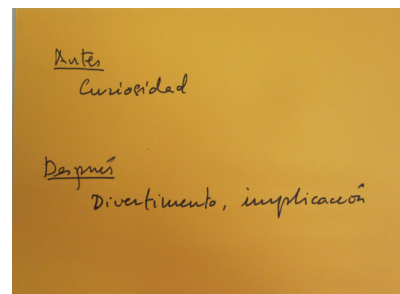 Antes
Curiosidad
Después
Divertimento, implicación